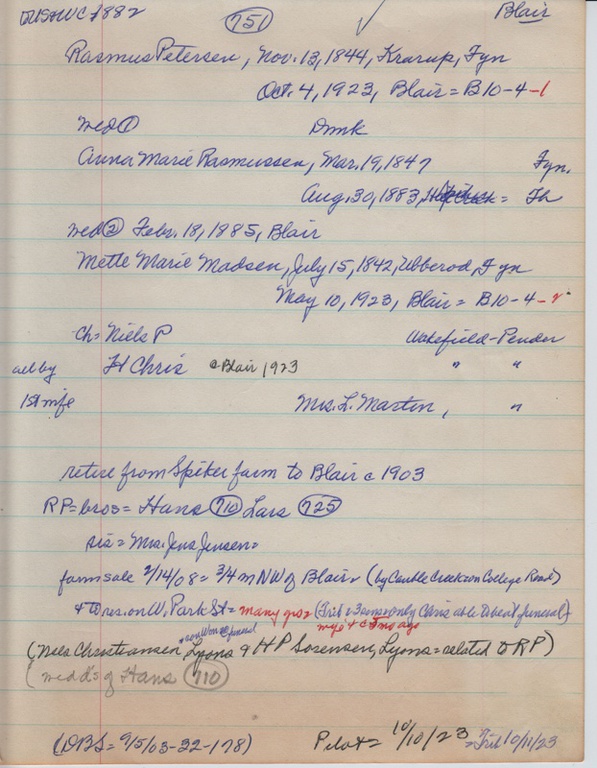 751
Blair
Rasmus Petersen, Nov. 13, 1844, Krarup, Fyn
Oct. 4, 1923, Blair = B10-4-1
med ① Dnmk
Anna Marie Rasmussen, Mar. 19, 1847 Fyn.
Aug. 30, 1883, = Th
med ② Febr. 18, 1885, Blair
Mette Marie Madsen, July 15, 1842, Ubberod, Fyn
May 10, 1923, Blair = B10-4-2
ch = Niels P Wakefield-Pender
all by H Chris @ Blair 1923 " "
1st wife Mrs. L. Martin, "
retire from Spiker farm to Blair c 1903
RP = bros = Hans 710 Lars 725
sis = Mrs. Jens Jensen =
farm sale 2/14/08 = 3/4 m NW of Blair (by Cauble Creek on College Road)
& to res. on W. Park St = many yrs (Trib = 3 sons only Chris able to beat funeral)
wife + c 5 mo ago
(Niels Christiansen, Lyons & H P Sorensen, Lyons = related to RP)
(med d's of Hans 710)
(DBS = 9/5/03-32-178) Pilot = 10/10/23 = Trib 10/11/23